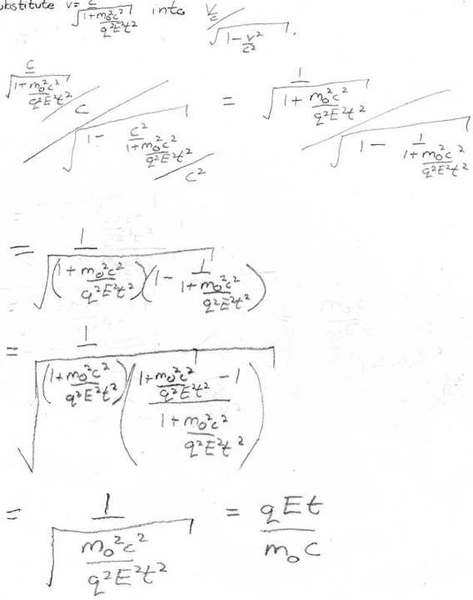 ubstitute v = c / √(1 + m₀²c² / q²E²t²) into v/c / √(1 - v²/c²).
c / √(1 + m₀²c² / q²E²t²) / c / √(1 - c² / (1 + m₀²c² / q²E²t²) / c²) = 1 / √(1 + m₀²c² / q²E²t²) / √(1 - 1 / (1 + m₀²c² / q²E²t²))
= 1 / √((1 + m₀²c² / q²E²t²)(1 - 1 / (1 + m₀²c² / q²E²t²)))
= 1 / √((1 + m₀²c² / q²E²t²)((1 + m₀²c² / q²E²t² - 1) / (1 + m₀²c² / q²E²t²)))
= 1 / √(m₀²c² / q²E²t²) = qEt / m₀c